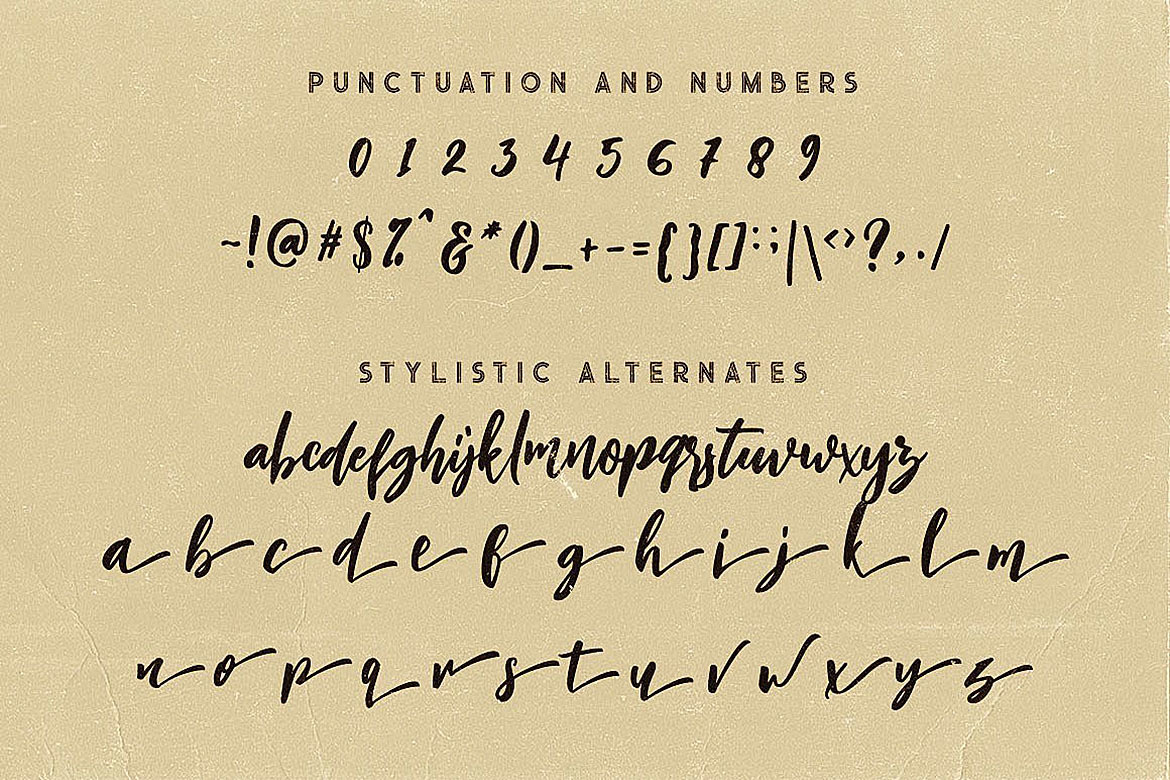 PUNCTUATION AND NUMBERS
0 1 2 3 4 5 6 7 8 9
~!@#$%^&*()_+-={}[]:;|\<>?,./
STYLISTIC ALTERNATES
abcdefghijklmnopqrstuvwxyz
a b c d e f g h i j k l m
n o p q r s t u v w x y z